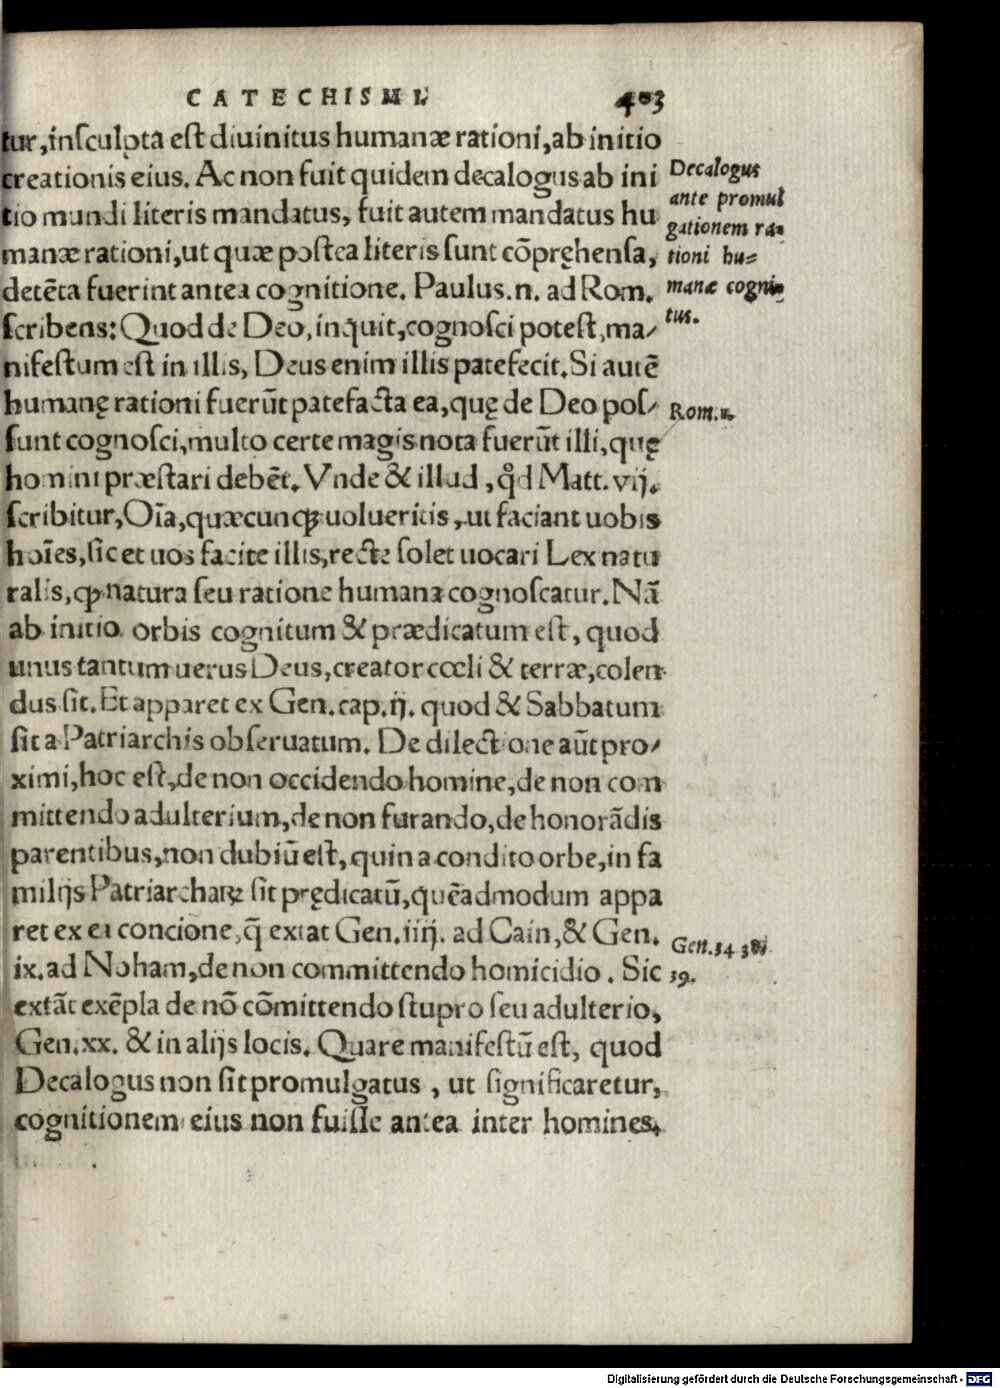 CATECHISMI. 403
tur, insculpta est diuinitus humanæ rationi, ab initio
creationis eius. Ac non fuit quidem decalogus ab ini
tio mundi literis mandatus, fuit autem mandatus hu
manæ rationi, ut quæ postea literis sunt cōpręhensa,
detēta fuerint antea cognitione. Paulus .n. ad Rom.
scribens: Quod de Deo, inquit, cognosci potest, ma/
nifestum est in illis, Deus enim illis patefecit. Si autē
humanę rationi fuerūt patefacta ea, quę de Deo pos/
sunt cognosci, multo certe magis nota fuerūt illi, quę
homini præstari debēt. Vnde & illud, qd̓ Matt. vij.
scribitur, Oīa, quæcunqꝫ uolueritis, ut faciant uobis
hoīes, sic et uos facite illis, recte solet uocari Lex natu
ralis, ꝙ natura seu ratione humana cognoscatur. Nā
ab initio orbis cognitum & prædicatum est, quod
unus tantum uerus Deus, creator cœli & terræ, colen
dus sit. Et apparet ex Gen. cap. ij. quod & Sabbatum
sit a Patriarchis obseruatum. De dilectione aūt pro/
ximi, hoc est, de non occidendo homine, de non com
mittendo adulterium, de non furando, de honorādis
parentibus, non dubiū est, quin a condito orbe, in fa
milijs Patriarchaꝝ sit prędicatū, quēadmodum appa
ret ex ea concione, q̄ extat Gen. iiij. ad Cain, & Gen.
ix. ad Noham, de non committendo homicidio. Sic
extāt exēpla de nō cōmittendo stupro seu adulterio,
Gen. xx. & in alijs locis. Quare manifestū est, quod
Decalogus non sit promulgatus, ut significaretur,
cognitionem eius non fuisse antea inter homines.
Decalogus
ante promul
gationem ra-
tioni hu-
manæ cogni-
tus.
Rom.
Gen. 34 38
39.
Digitalisierung gefördert durch die Deutsche Forschungsgemeinschaft - DFG